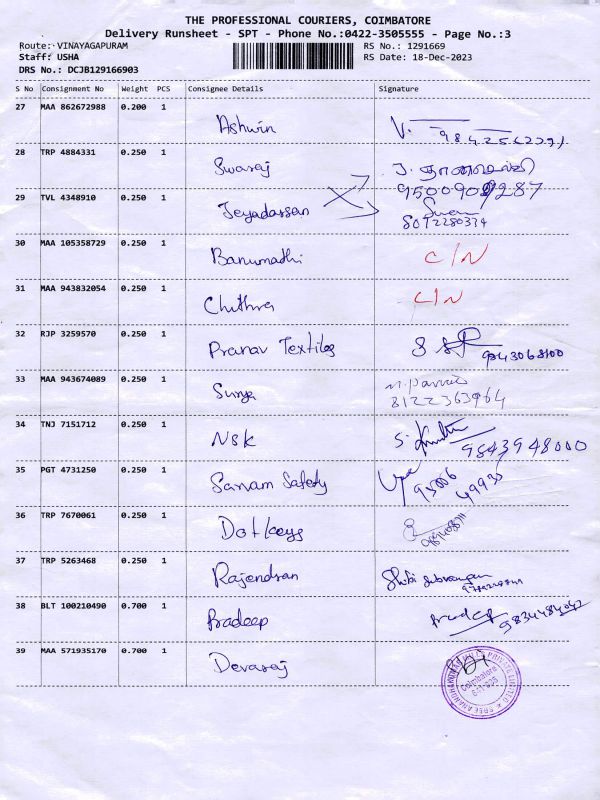 THE PROFESSIONAL COURIERS, COIMBATORE
Delivery Runsheet - SPT - Phone No.:0422-3505555 - Page No.:3
Route: VINAYAGAPURAM RS No.: 1291669
Staff: USHA RS Date: 18-Dec-2023
DRS No.: DCJB129166903
S No Consignment No Weight PCS Consignee Details Signature
27 MAA 862672988 0.200 1 Ashwin V.
28 TRP 4884331 0.250 1 Swaraj
9500909287
29 TVL 4348910 0.250 1 Jeyadassan
8072280334
30 MAA 105358729 0.250 1 Banumathi C/N
31 MAA 943832054 0.250 1 Chithra C/N
32 RJP 3259570 0.250 1 Pranav Textiles 9843068100
33 MAA 943674089 0.250 1 Surya
8122363964
34 TNJ 7151712 0.250 1 Nsk S. 9843948000
35 PGT 4731250 0.250 1 Sanam Safety 95006 49935
36 TRP 7670061 0.250 1 Dotkeys
37 TRP 5263468 0.250 1 Rajendran
38 BLT 100210490 0.700 1 Pradeep Pradeep
39 MAA 571935170 0.700 1 Devaraj
Coimbatore